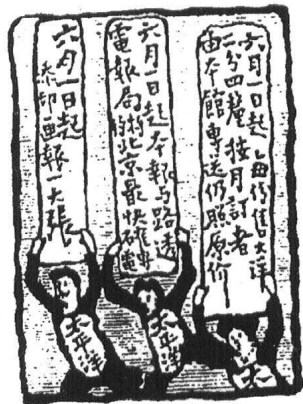 六月一日起 每份售大洋
二分四釐 按月訂者
由本館專送仍照原價
六月一日起 本報與路透
電報局特約北京最快確電
六月一日起
添印畫報一大張
太平洋
太平洋
太